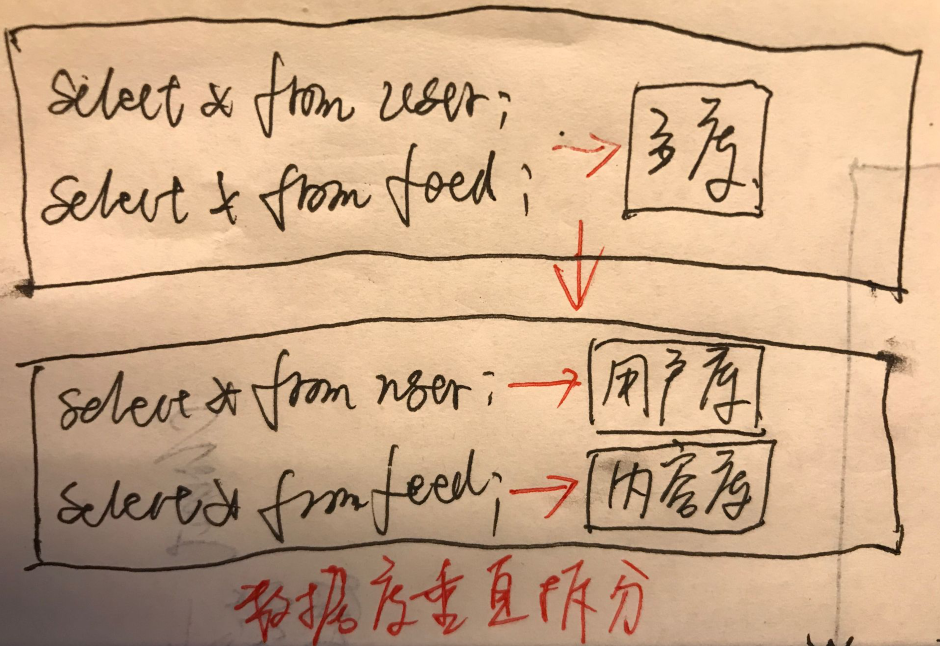 select * from user;
select * from feed;
主库
select * from user;
用户库
select * from feed;
内容库
数据库垂直拆分